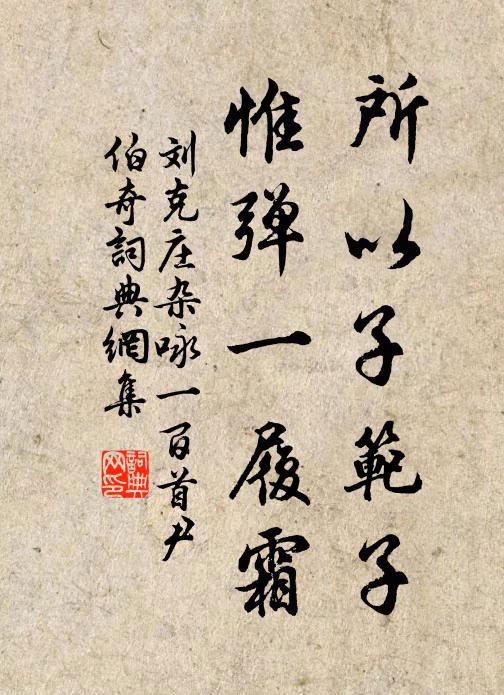 所以子範子
惟弹一履霜
刘克庄杂咏一百首尹
伯奇詞典網集
詞典网印